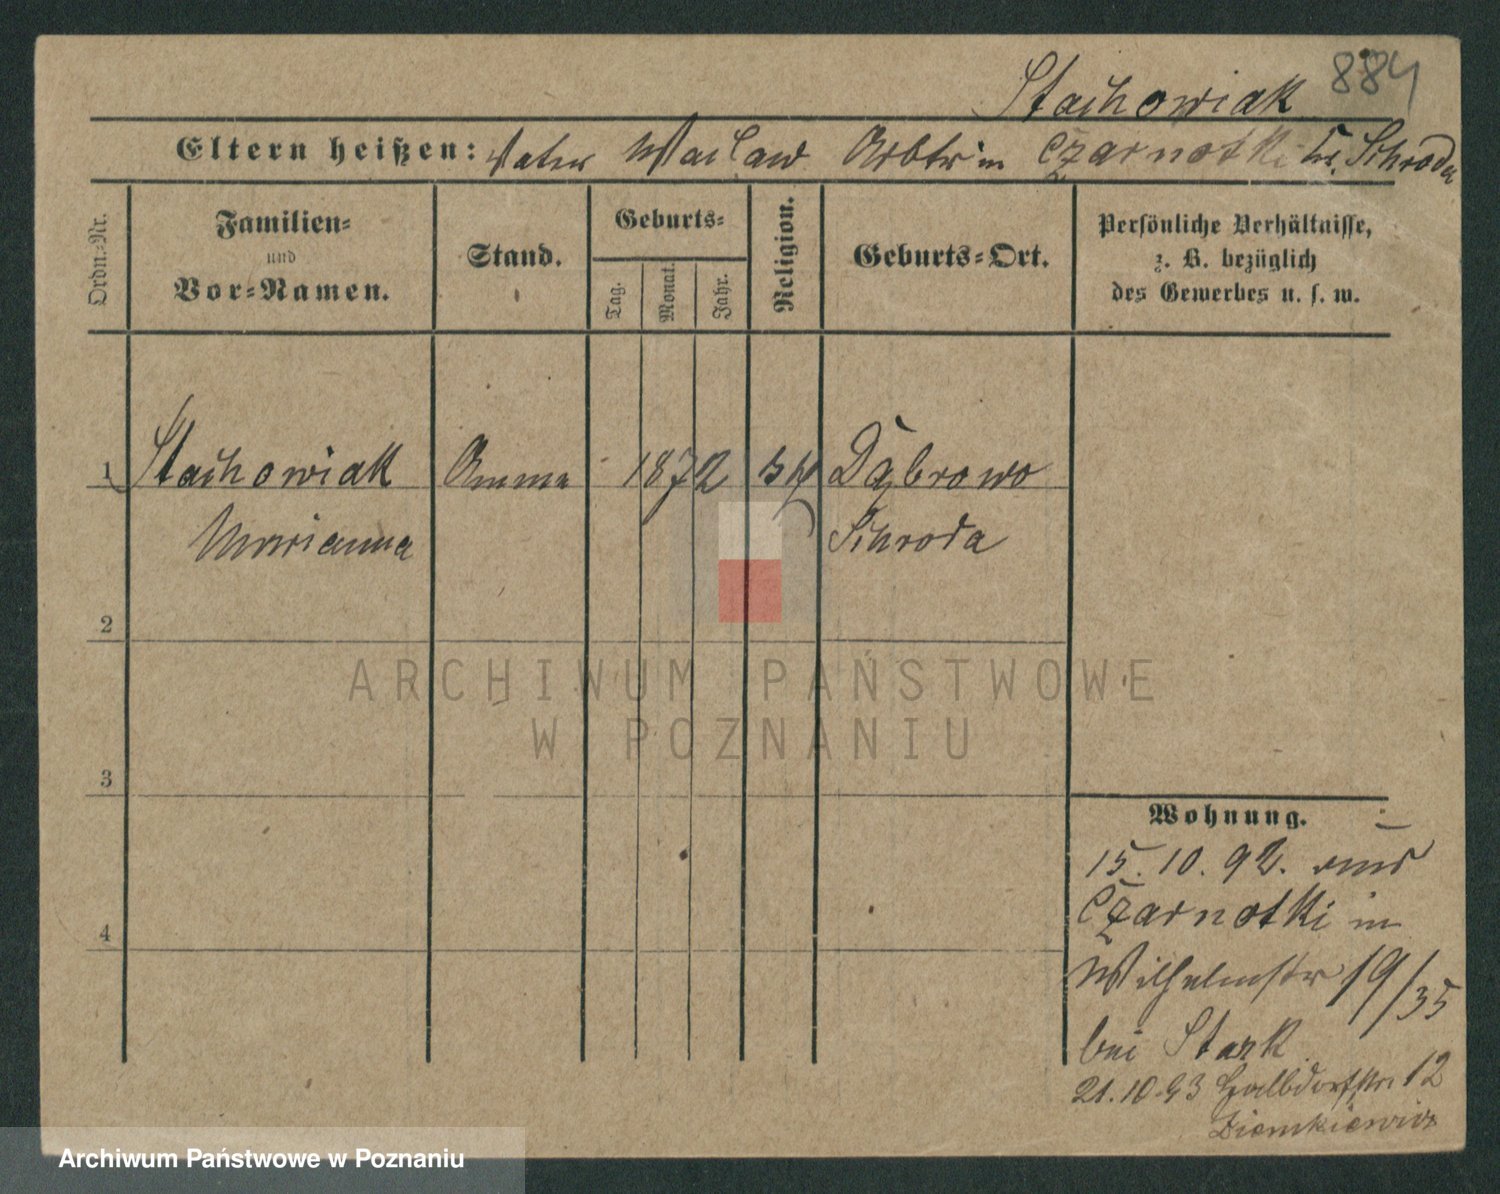 884
Stachowiak
Eltern heißen: Vater Waclaw Arbtr in Czarnotki Kr. Schroda
Ordn.-Nr.
Familien-
und
Vor-Namen.
Stand.
Geburts-
Tag.
Monat.
Jahr.
Religion.
Geburts-Ort.
Persönliche Verhältnisse,
z. B. bezüglich
des Gewerbes u. s. w.
1 Stachowiak Amme 1872 kth Dąbrowo
Marianna Schroda
2
3
4
Wohnung.
15.10.92. aus
Czarnotki in
Wilhelmstr 19/35
bei Stark
21.10.93 Halbdorfstr 12
ARCHIWUM PAŃSTWOWE
W POZNANIU
Archiwum Państwowe w Poznaniu